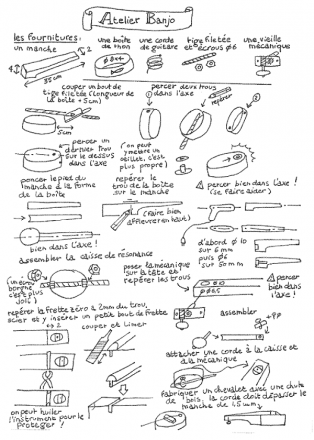 Atelier Banjo
les fournitures:
un manche
une boîte
de thon
une corde
de guitare
tige filetée
et écrous ø6
une vieille
mécanique
4
2
35 cm
couper un bout de
tige filetée (longueur de
la boîte + 5 cm)
5cm
percer deux trous
dans l'axe
repérer
percer un
dernier trou
sur le dessus
dans l'axe
(on peut
y mettre un
œillet, c'est
plus propre)
poncer le pied du
manche à la forme
de la boîte
repérer le
trou de la boîte
sur le manche
⚠ percer bien dans l'axe!
(se faire aider)
(faire bien
affleurer en haut)
bien dans l'axe!
d'abord ø 10
sur 6 mm
puis ø6
sur 50 mm
assembler la caisse de résonance
(un écrou
borgne
c'est plus
joli)
poser la mécanique
sur la tête et
repérer les trous
⚠ percer
bien dans
l'axe!
repérer la frette zéro à 2mm du trou,
scier et y insérer un petit bout de frette
assembler
couper et limer
attacher une corde à la caisse et
à la mécanique
fabriquer un chevalet avec une chute
de bois, la corde doit dépasser le
manche de 1,5 mm
on peut huiler
l'instrument pour le
protéger!